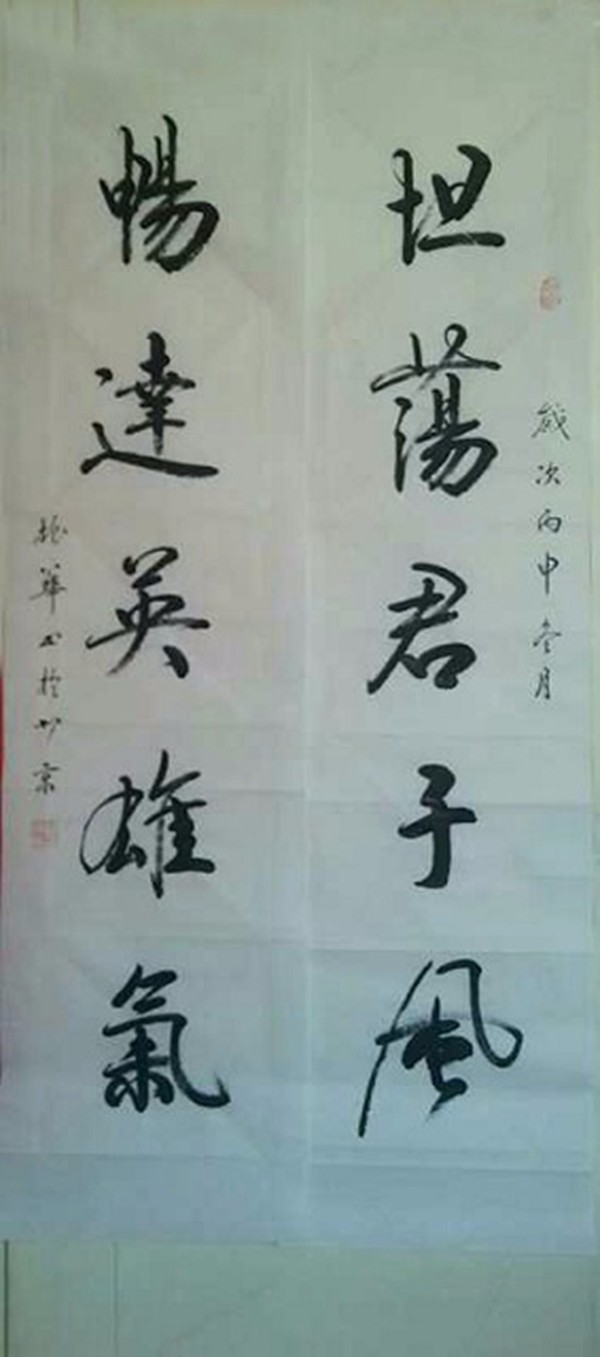 歲次丙申冬月
坦蕩君子風
暢達英雄氣
振華書於北京